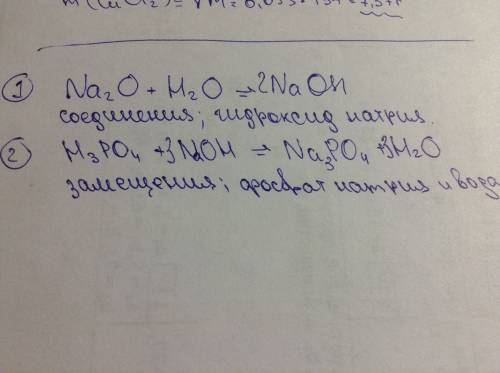 m(CuCl2) = νM = 0,055 · 134 = 7,37г
1 Na2O + H2O = 2NaOH
соединения; гидроксид натрия.
2 H3PO4 + 3NaOH = Na3PO4 + 3H2O
замещения; фосфат натрия и вода